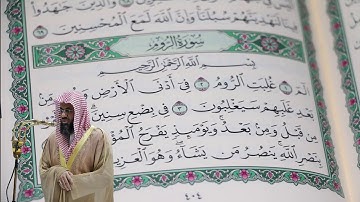 لَنَهْدِيَنَّهُمْ سُبُلَنَا وَإِنَّ اللَّهَ لَمَعَ الْمُحْسِنِينَ ٦٩
سُورَةُ الرُّومِ
بِسْمِ اللَّهِ الرَّحْمَٰنِ الرَّحِيمِ
الٓمٓ ١ غُلِبَتِ الرُّومُ ٢ فِي أَدْنَى الْأَرْضِ
بَعْدِ غَلَبِهِمْ سَيَغْلِبُونَ ٣ فِي بِضْعِ سِنِينَ
مِن قَبْلُ وَمِن بَعْدُ وَيَوْمَئِذٍ يَفْرَحُ
بِنَصْرِ اللَّهِ يَنصُرُ مَن يَشَاءُ وَهُوَ الْعَزِيزُ
٤٠٤